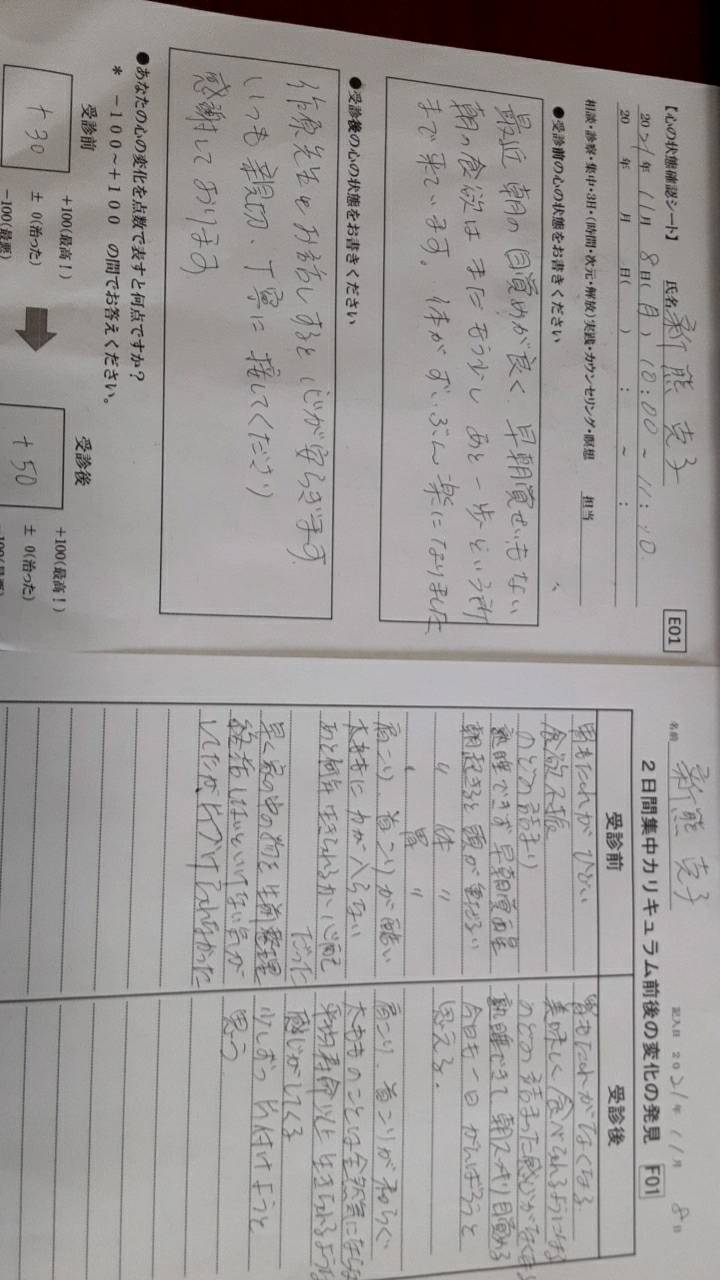 【心の状態確認シート】 氏名 新熊 克子 E01
2021年 11月 8日(月) 10:00 ~ 11:10
20 年 月 日( ) : ~ :
相談・診察・集中・3日・(時間・次元・解放)実践・カウンセリング・瞑想 担当
●受診前の心の状態をお書きください
最近 朝の目覚めが良く、早朝覚せいもない
朝の食欲はまだもう少しあと一歩という所
まで来ています。体がずいぶん楽になりました
●受診後の心の状態をお書きください
先生とお話しすると心が安らぎます
いつも親切、丁寧に接してくださり
感謝しております
●あなたの心の変化を点数で表すと何点ですか?
* -100~+100 の間でお答えください。
受診前
+30
+100(最高!)
± 0(治った)
-100(最悪)
受診後
+50
+100(最高!)
± 0(治った)
名前 新熊 克子 記入日 2021年 11月 8日
2日間集中カリキュラム前後の変化の発見 F01
受診前
胃もたれがひどい
食欲不振
のどの詰まり
熟睡できず早朝覚醒
朝起きると頭が重だるい
〃 体 〃
〃 胃 〃
肩こり、首こりが酷い
太ももに力が入らない
あと何年生きられるか心配
だった
早く家の中の物を生前整理
しないといけない気が
していたが、片づけられなかった
受診後
胃もたれがなくなる
美味しく食べられるようになる
のどの詰まった感じがなくなる
熟睡できて朝スッキリ目覚める
今日も一日がんばろうと
思える。
肩こり、首こりが和らぐ
太もものことは全然気にならない
平均寿命以上生きられるような
感じがしてくる
少しずつ片付けようと
思う